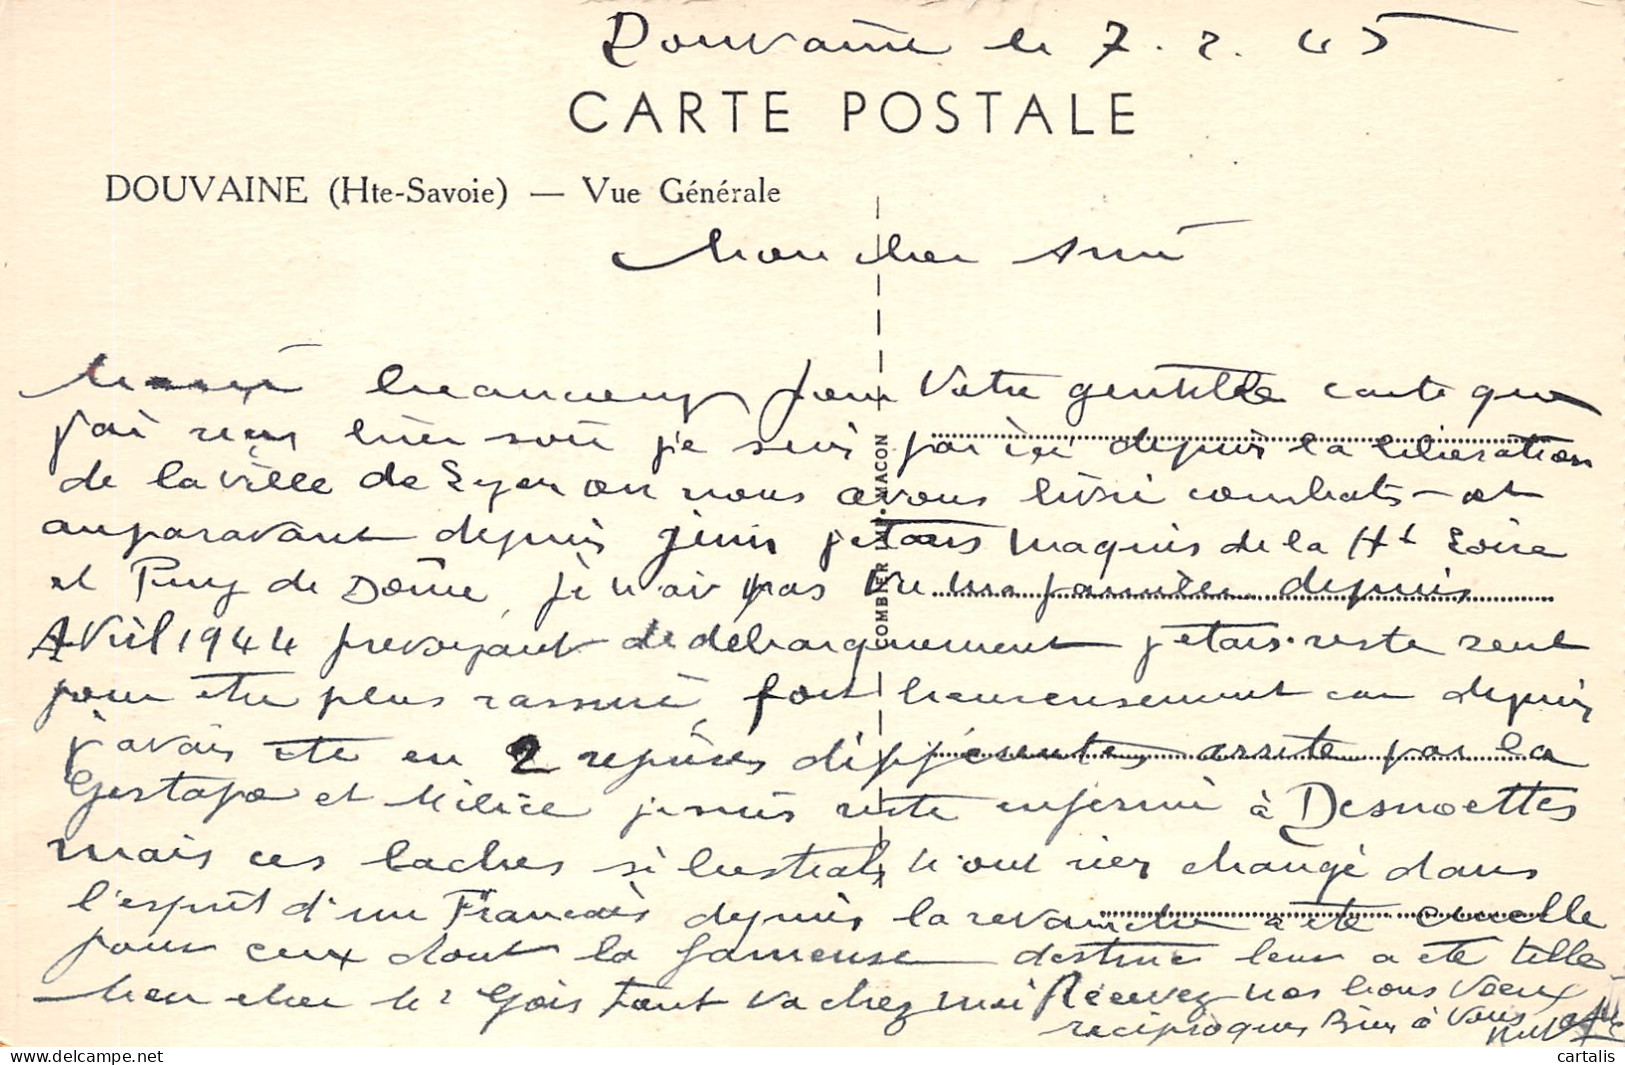 Douvaine le 7. 2. 45
CARTE POSTALE
DOUVAINE (Hte-Savoie) — Vue Générale
Mon cher Ami
beaucoup pour votre gentille carte que
j'ai reçu hier soir je suis par ici depuis la libération
de la ville de Lyon ou nous avons livré combats - et
auparavant depuis juin jetais Maquis de la Hte Loire
et Puy de Dôme, je n'ai pas vu ma famille depuis
Avril 1944 prevoyant de debarquement jetais reste seul
pour etre plus rassuré, fort heureusement car depuis
j'avais ete en 2 reprises différentes arrete par la
Gestapo et Milice je suis reste enfermé à Desnoettes
mais ces laches si n'ont rien changé dans
l'esprit d'un Francais depuis la revanche a ete cruelle
pour ceux dont la fameuse leur a ete telle
Mon cher Mr Gois tout va chez moi Recevez nos bons Voeux
reciproques Bien à Vous
COMBIER IMP. MACON
cartalis